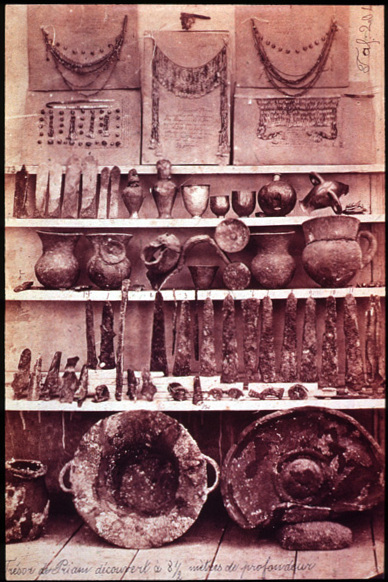 Taf. 204
résor de Priam découvert à 8½ mètres de profondeur